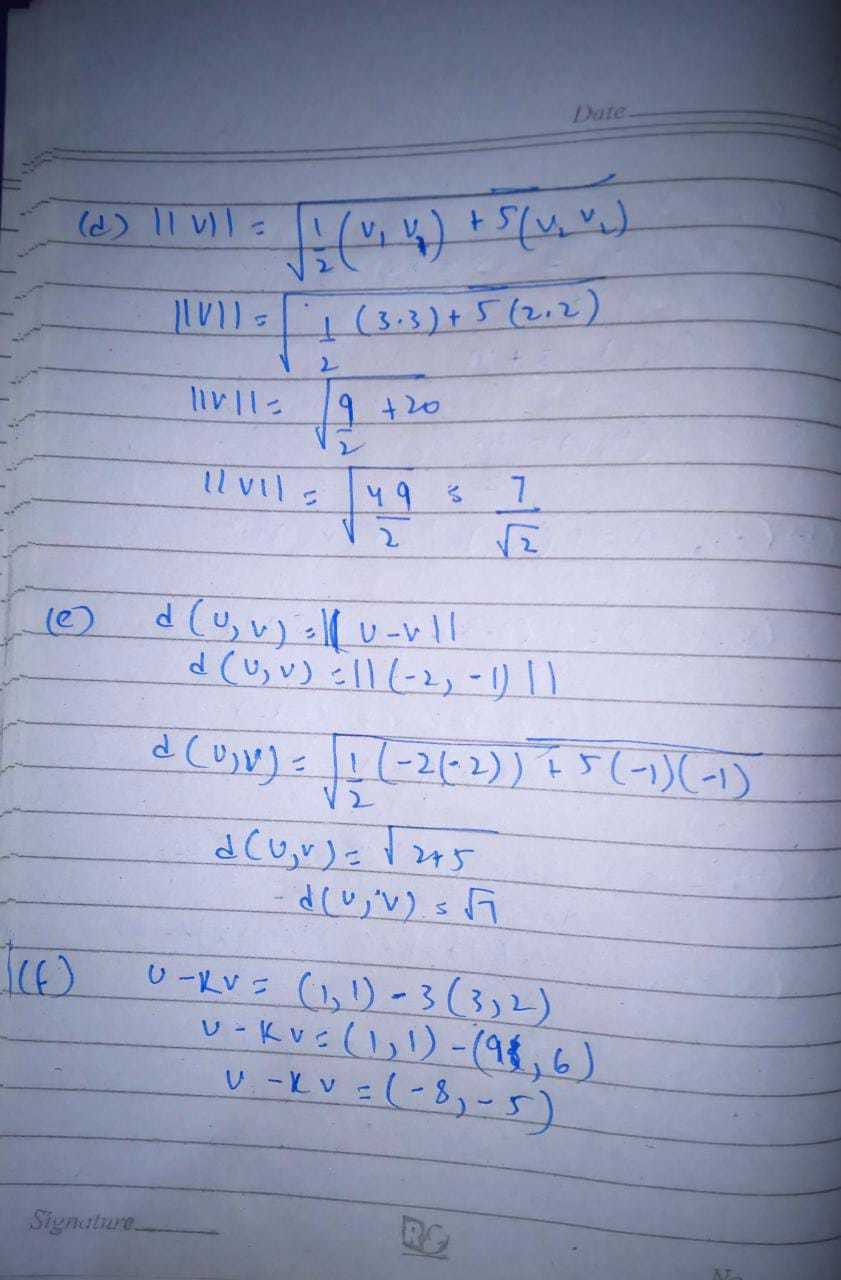 Date
(d) ||v|| = √(1/2 (v₁ v₁) + 5(v₂ v₂))
||v|| = √(1/2 (3.3) + 5(2.2))
||v|| = √(9/2 + 20)
||v|| = √(49/2) = 7/√2
(e) d(u,v) = ||u-v||
d(u,v) = ||(-2,-1)||
d(u,v) = √(1/2 (-2(-2)) + 5(-1)(-1))
d(u,v) = √(2+5)
d(u,v) = √7
(f) u-kv = (1,1)-3(3,2)
u-kv = (1,1)-(9,6)
u-kv = (-8,-5)
Signature
RC